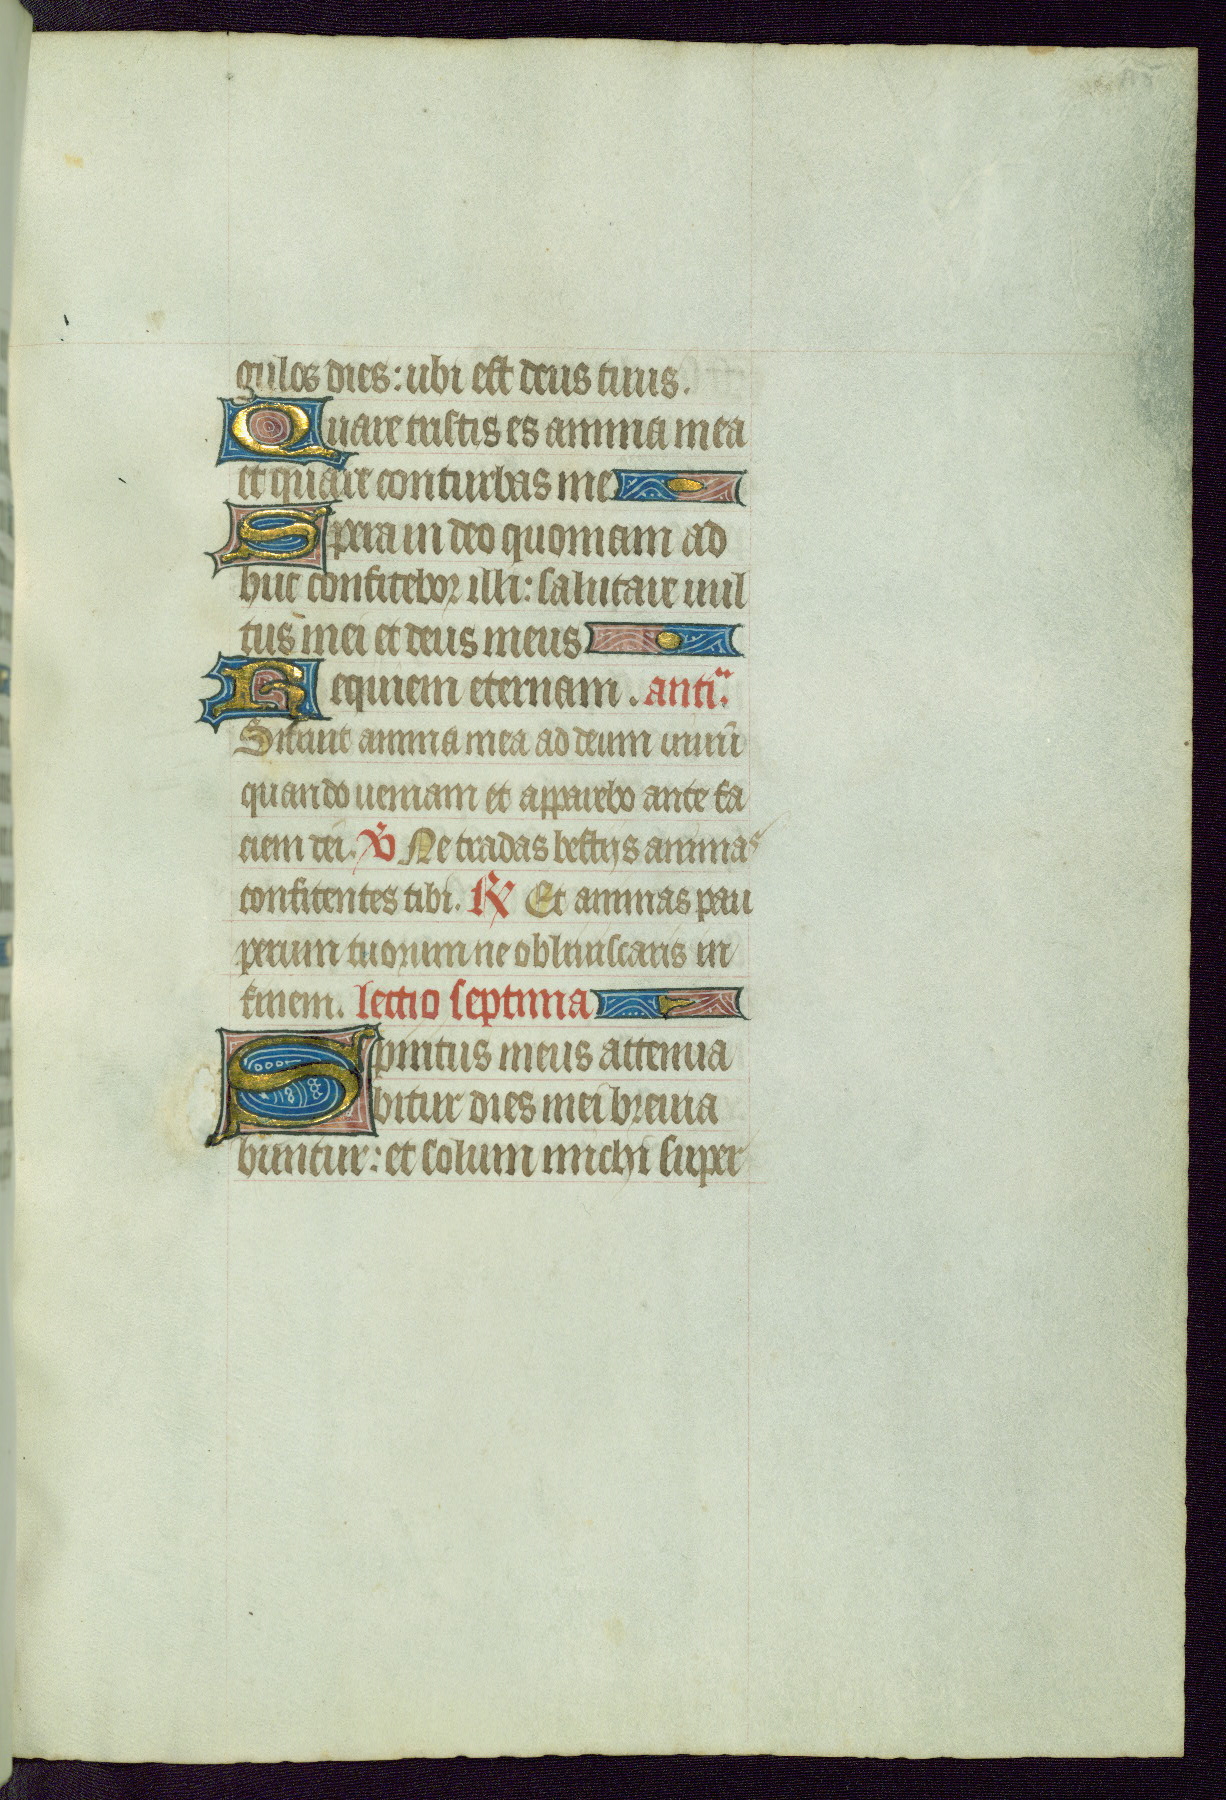 gulos dies: ubi est deus tuus.
Quare tristis es anima mea
et quare conturbas me
Spera in deo quoniam ad
huc confitebor illi: salutare uul
tus mei et deus meus
Requiem eternam. anti.
Sitiuit anima mea ad deum uiuū
quando ueniam et apparebo ante fa
ciem dei. ℣ Ne tradas bestijs animas
confitentes tibi. ℟ Et animas pau
perum tuorum ne obliuiscaris in
finem. lectio septima
Spiritus meus attenua
bitur dies mei breuia
buntur: et solum michi super